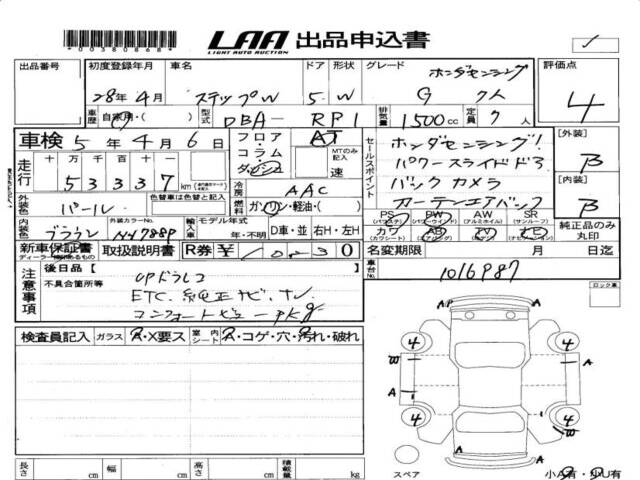 *00380868*
LAA 出品申込書
LIGHT AUTO AUCTION
出品番号 初度登録年月 車名 ドア 形状 グレード 評価点
28年4月 ステップW 5.W ホンダセンシング G 7人 4
車歴 自家用・( ) 型式 DBA- RP1 排気量 1500cc 定員 7人
車検 5年4月6日 フロア・コラム・ダッシュ AT MTのみ記入 速
走行 十万千百十一 53337km
セールスポイント ホンダセンシング!
パワースライドドア
バックカメラ
カーテンエアバック
[外装] B
[内装] B
冷房 AAC
外装色 パール 色替車は色替と記入 燃料 ガソリン・軽油・( )
PS PW AW SR
(パワステ) (パワーウインド) (アルミホイル) (サンルーフ)
カワ AB TV ナビ
(カワシート) (エアバッグ) (テレビ) (ナビゲーション)
純正品のみ丸印
内装色 ブラウン 外装カラーNo. NH788P 輸入車 モデル年式 年・不明 D車・並 右H・左H
新車保証書 取扱説明書 R券 ¥10230 名変期限 月 日迄
ディーラー捺印あるもの
注意事項 後日品[ ] CPドラレコ 車台No. 1016987
不具合箇所等 ETC. 純正ナビ、TV
コンフォートビューpkg
ロック車
検査員記入 ガラス A・X要ス 室内シート A・コゲ・穴・汚れ・破れ
AP A
4 4
A A
A
4 4
W
A
長さ cm 幅 cm 高さ cm 積載量 kg
スペア 小A有・小U有